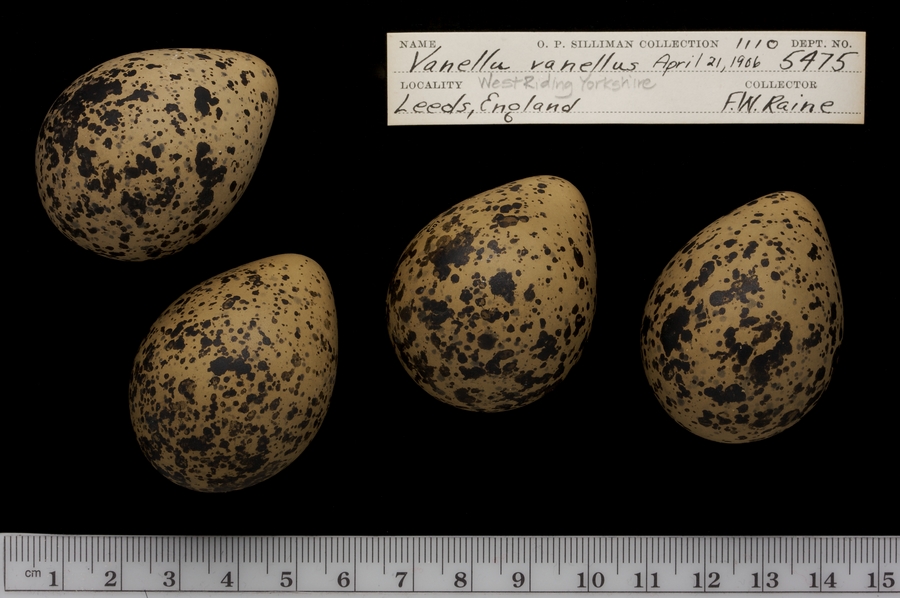 NAME O. P. SILLIMAN COLLECTION 1110 DEPT. NO.
Vanellu vanellus April 21, 1906 5475
LOCALITY West Riding Yorkshire COLLECTOR
Leeds, England F.W. Raine
cm 1 2 3 4 5 6 7 8 9 10 11 12 13 14 15